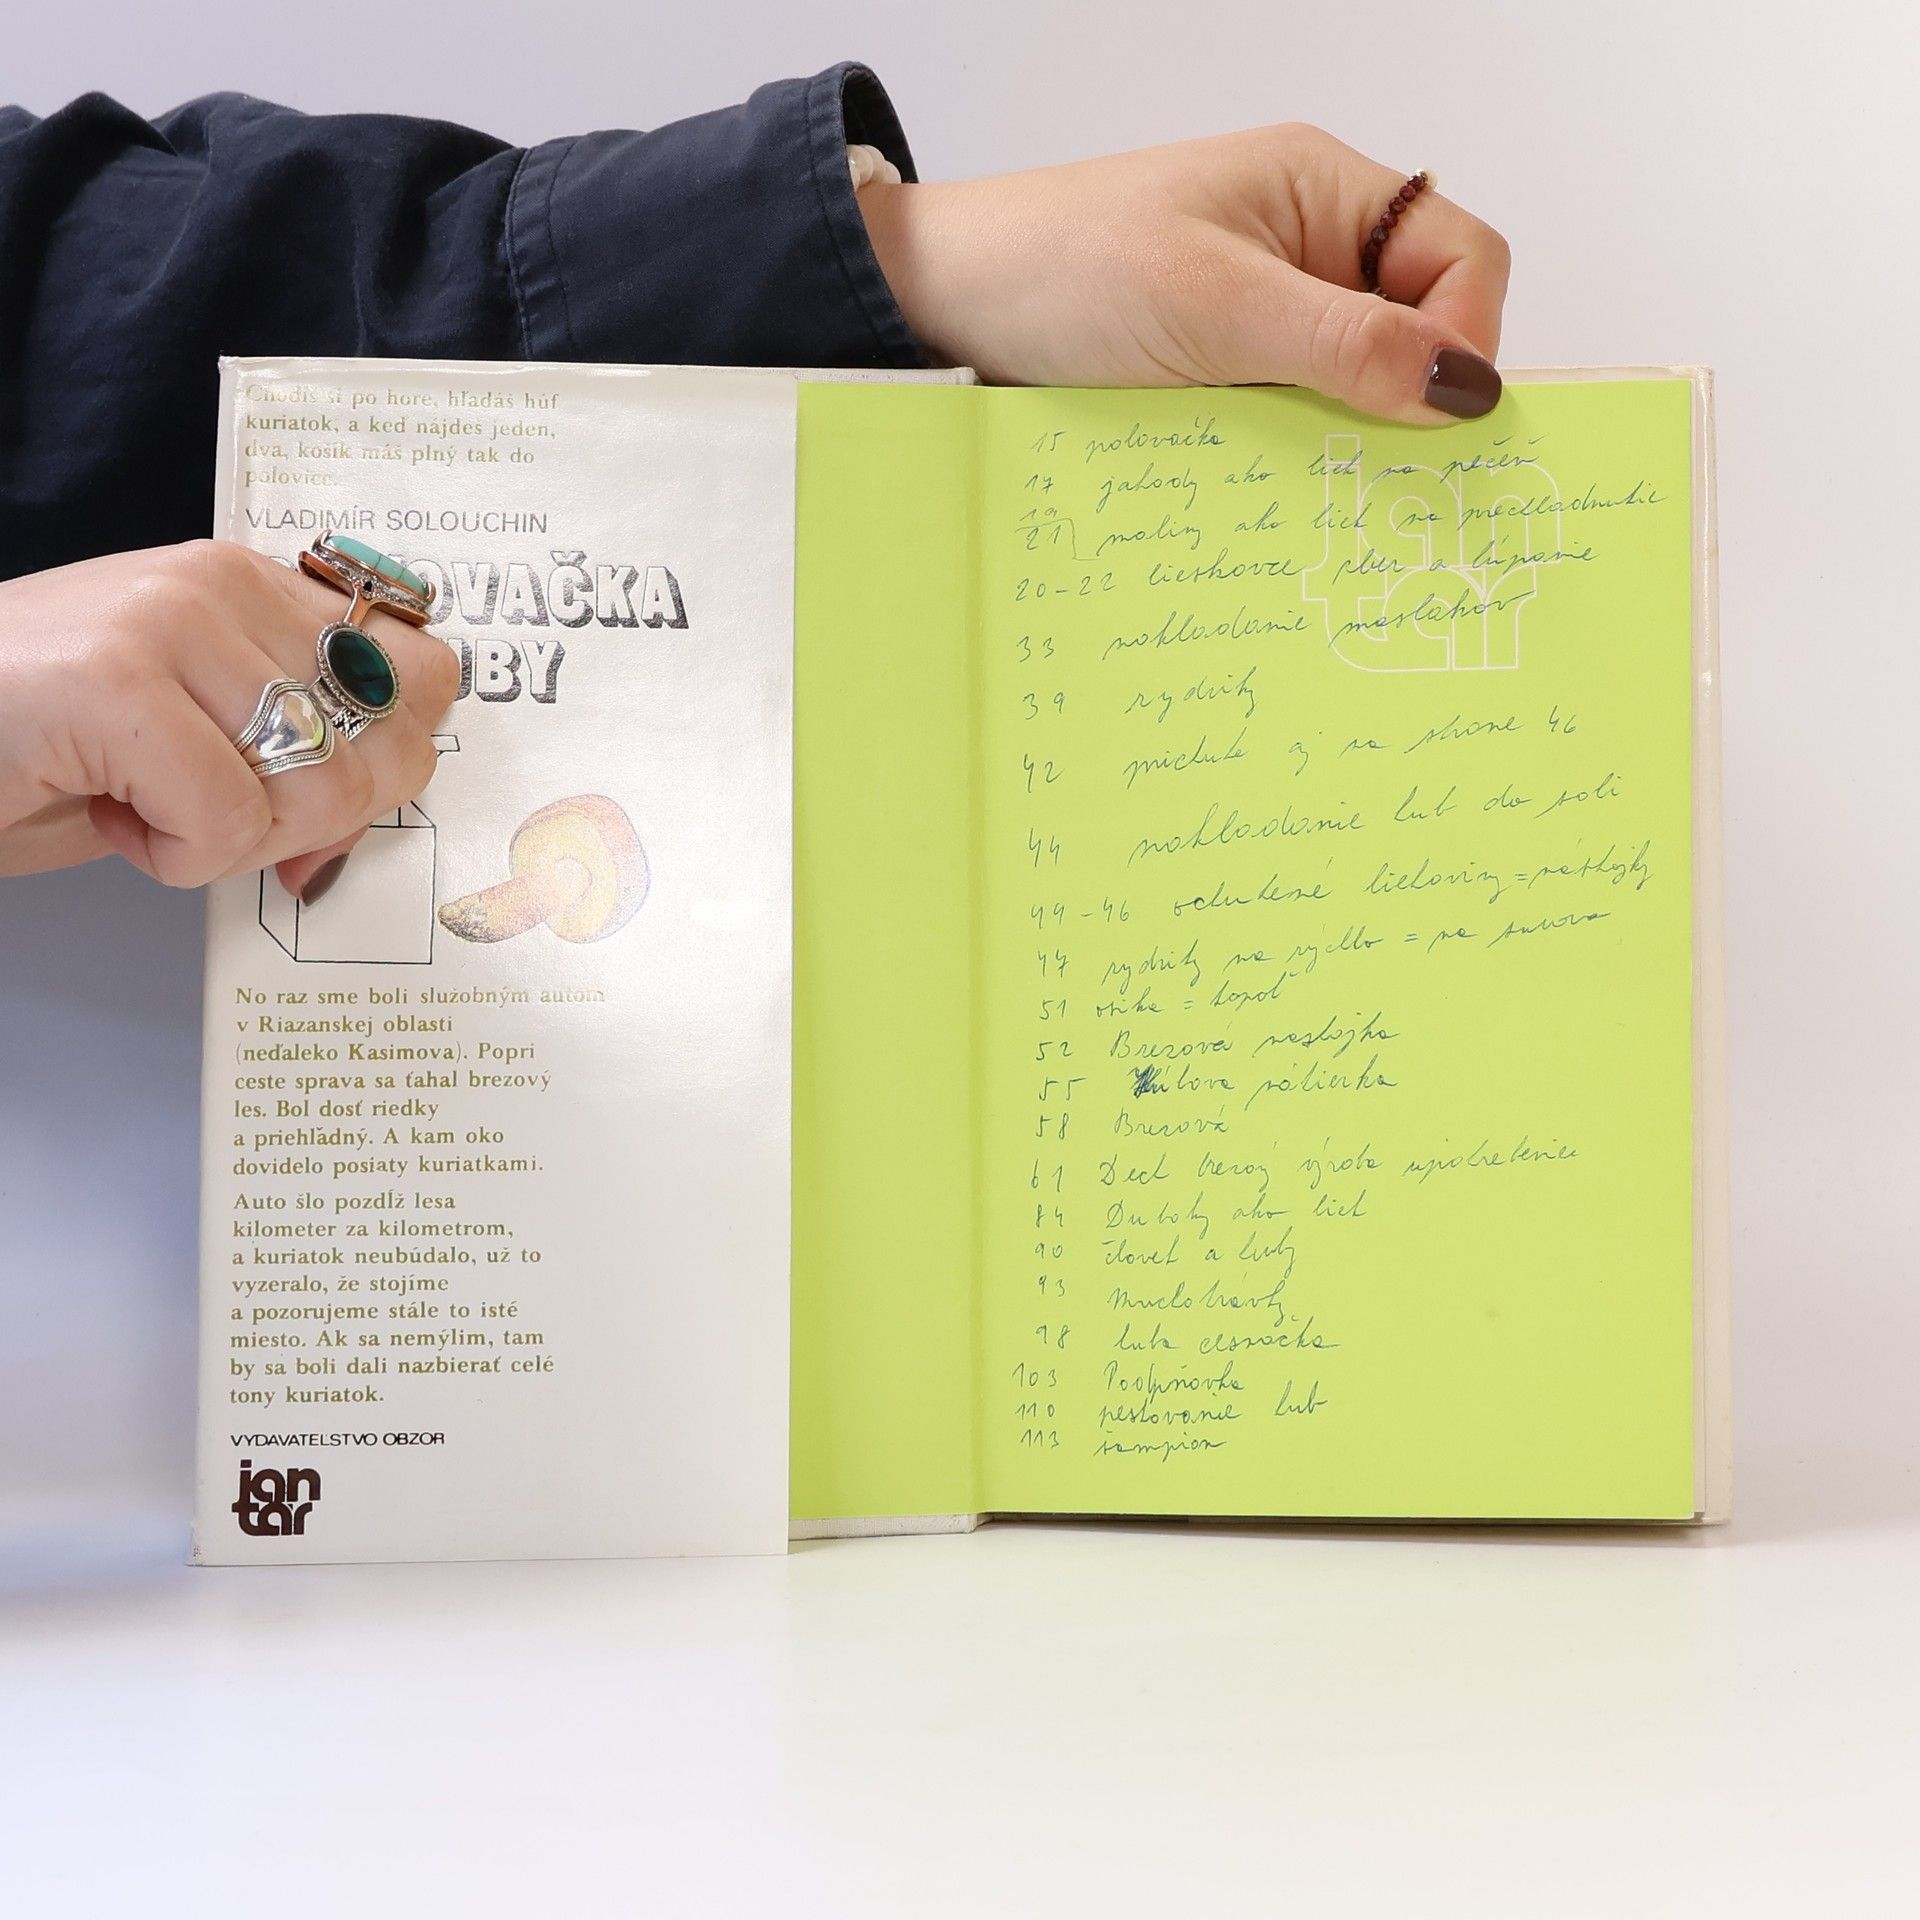 Chodíš si po hore, hľadáš húf
kuriatok, a keď nájdeš jeden,
dva, košík máš plný tak do
polovice.
VLADIMÍR SOLOUCHIN
OVAČKA
UBY
No raz sme boli služobným autom
v Riazanskej oblasti
(neďaleko Kasimova). Popri
ceste sprava sa ťahal brezový
les. Bol dosť riedky
a priehľadný. A kam oko
dovidelo posiaty kuriatkami.
Auto šlo pozdĺž lesa
kilometer za kilometrom,
a kuriatok neubúdalo, už to
vyzeralo, že stojíme
a pozorujeme stále to isté
miesto. Ak sa nemýlim, tam
by sa boli dali nazbierať celé
tony kuriatok.
VYDAVATEĽSTVO OBZOR
jan
tár
jan
tár
15 polovačka
17 jahody ako liek na pečeň
19
21 maliny ako liek na
20-22 lieskovce zber a lúpanie
33 nakladanie maslakov
39 rydziky
42 príchute aj na strane 46
44 nakladanie húb do soli
44-46 ochutené liehoviny = nástojky
47 rydziky na rýchlo = na surovo
51 osika = topoľ
52 Brezová nastojka
55
58 Brezová
61 Decht brezový výroba upotrebenie
84 Dubáky ako liek
90 človek a huby
93 Muchotrávky
98 huba cesnačka
103 Podpňovka
110 pestovanie húb
113 šampion